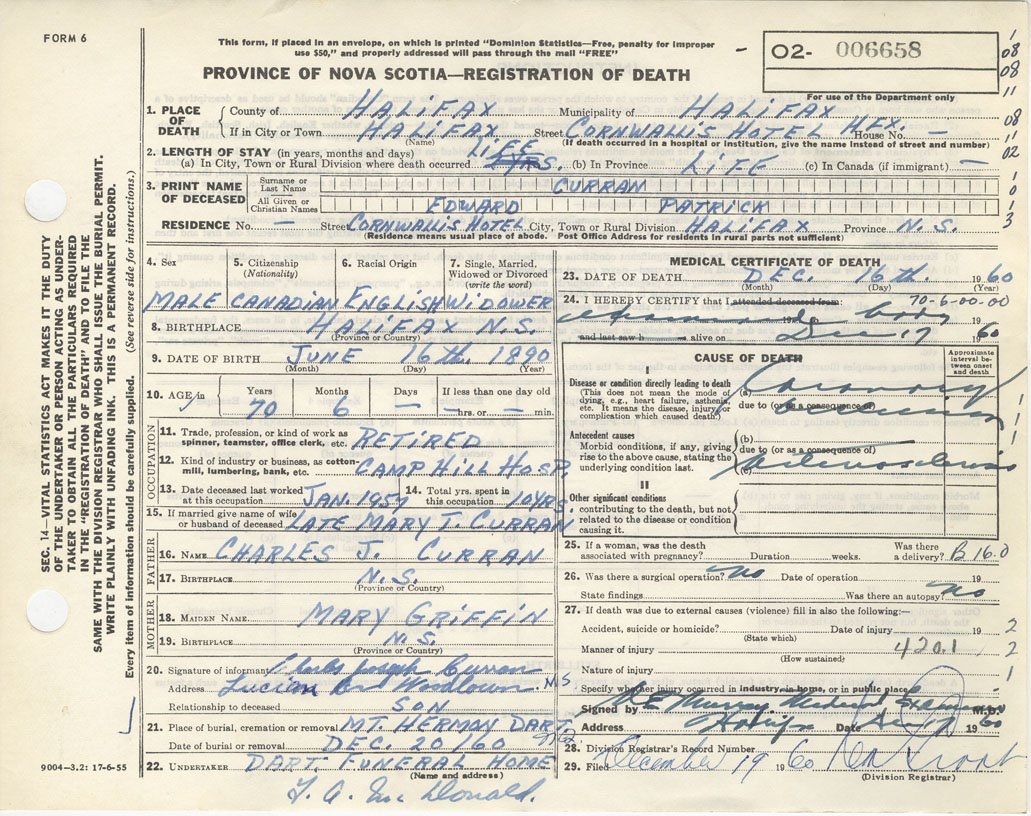 FORM 6
This form, if placed in an envelope, on which is printed "Dominion Statistics—Free, penalty for improper
use $50," and properly addressed will pass through the mail "FREE"
O2- 006658
For use of the Department only
PROVINCE OF NOVA SCOTIA—REGISTRATION OF DEATH
1. PLACE OF DEATH
County of HALIFAX Municipality of HALIFAX
If in City or Town HALIFAX Street CORNWALLIS HOTEL HFX. House No. —
(Name) (If death occurred in a hospital or institution, give the name instead of street and number)
2. LENGTH OF STAY (in years, months and days) LIFE
(a) In City, Town or Rural Division where death occurred YRS. (b) In Province LIFE (c) In Canada (if immigrant) —
3. PRINT NAME OF DECEASED
Surname or Last Name CURRAN
All Given or Christian Names EDWARD PATRICK
RESIDENCE No. — Street CORNWALLIS HOTEL City, Town or Rural Division HALIFAX Province N.S.
(Residence means usual place of abode. Post Office Address for residents in rural parts not sufficient)
4. Sex 5. Citizenship (Nationality) 6. Racial Origin 7. Single, Married, Widowed or Divorced (write the word)
MALE CANADIAN ENGLISH WIDOWER
8. BIRTHPLACE HALIFAX N.S.
(Province or Country)
9. DATE OF BIRTH JUNE 16th. 1890
(Month) (Day) (Year)
10. AGE in Years Months Days If less than one day old
70 6 — — hrs. or — min.
OCCUPATION
11. Trade, profession, or kind of work as spinner, teamster, office clerk, etc. RETIRED
12. Kind of industry or business, as cotton-mill, lumbering, bank, etc. CAMP HILL HOSP.
13. Date deceased last worked at this occupation JAN. 1957 14. Total yrs. spent in this occupation 10 YRS.
15. If married give name of wife or husband of deceased LATE MARY T. CURRAN
FATHER
16. NAME CHARLES J. CURRAN
17. BIRTHPLACE N.S.
(Province or Country)
MOTHER
18. MAIDEN NAME MARY GRIFFIN
19. BIRTHPLACE N.S.
(Province or Country)
20. Signature of informant Charles Joseph Curran
Address Woodlawn N.S
Relationship to deceased SON
21. Place of burial, cremation or removal MT. HERMAN DART.
Date of burial or removal DEC. 20/60
22. UNDERTAKER DART. FUNERAL HOME
(Name and address)
McDonald.
MEDICAL CERTIFICATE OF DEATH
23. DATE OF DEATH DEC. 16th. 1960
(Month) (Day) (Year)
24. I HEREBY CERTIFY that I attended deceased from: 70-6-00-00
19 body 19
and last saw h alive on Dec 17 1960
CAUSE OF DEATH
Approximate interval between onset and death
I
Disease or condition directly leading to death
(This does not mean the mode of dying, e.g., heart failure, asthenia, etc. It means the disease, injury or complication which caused death.)
(a) Coronary
due to (or as a consequence of)
Antecedent causes
Morbid conditions, if any, giving rise to the above cause, stating the underlying condition last.
(b)
due to (or as a consequence of)
(c)
II
Other significant conditions
contributing to the death, but not related to the disease or condition causing it.
25. If a woman, was the death associated with pregnancy? Duration weeks. Was there a delivery? B 16.0
26. Was there a surgical operation? No Date of operation 19
State findings Was there an autopsy? No
27. If death was due to external causes (violence) fill in also the following:—
Accident, suicide or homicide? Date of injury 19
(State which)
Manner of injury 420.1
(How sustained)
Nature of injury
Specify whether injury occurred in industry, in home, or in public place
Signed by Murray Medical M.D.
Address Halifax Date 1960
28. Division Registrar's Record Number
29. Filed December 19 1960
(Division Registrar)
SEC. 14—VITAL STATISTICS ACT MAKES IT THE DUTY
OF THE UNDERTAKER OR PERSON ACTING AS UNDER-
TAKER TO OBTAIN ALL THE PARTICULARS REQUIRED
IN THE "REGISTRATION OF DEATH" AND TO FILE THE
SAME WITH THE DIVISION REGISTRAR WHO SHALL ISSUE THE BURIAL PERMIT.
WRITE PLAINLY WITH UNFADING INK. THIS IS A PERMANENT RECORD.
Every item of information should be carefully supplied. (See reverse side for instructions.)
9004—3.2: 17-6-55
1
08
08
11
08
02
1
0
1
0
3
1
1
1
2
2
1